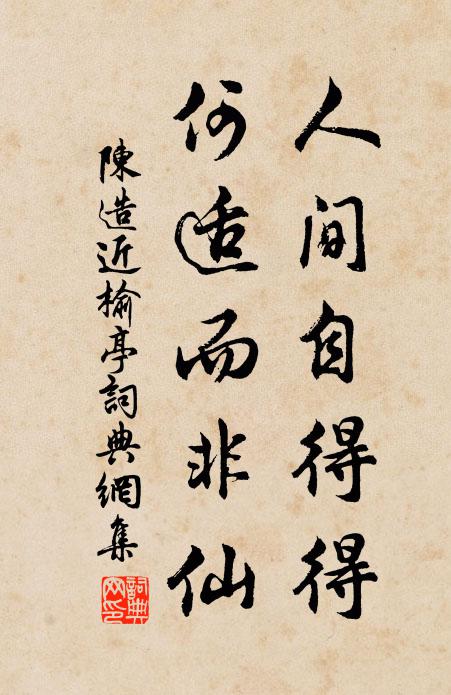 人間自得得
何適而非仙
陳造近榆亭詞典網集
詞典网印